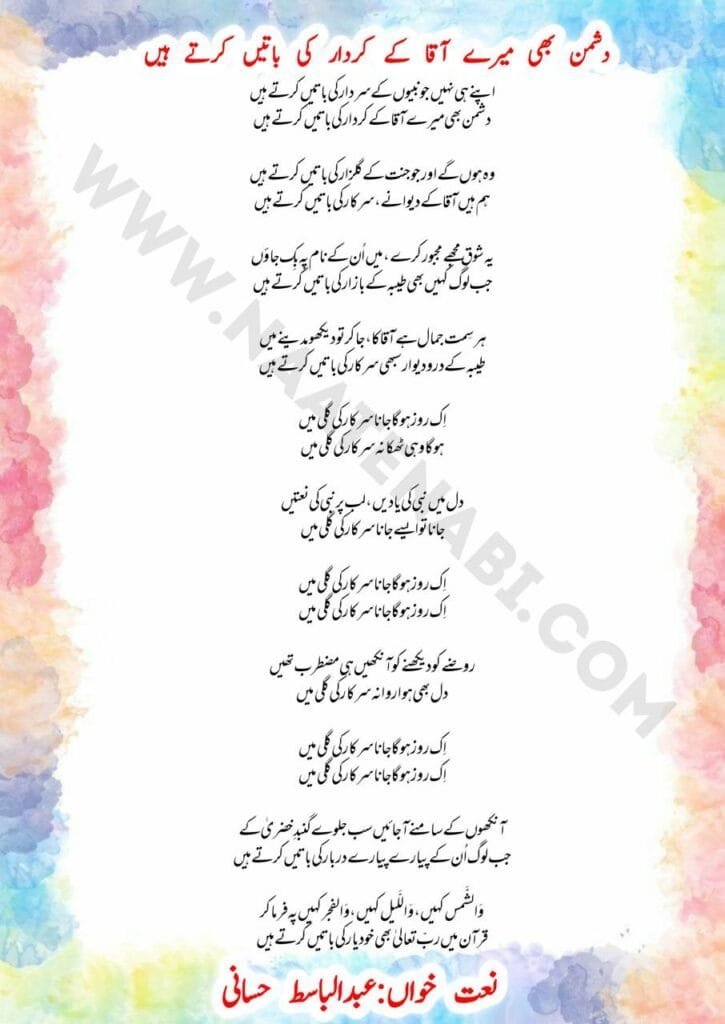 دشمن بھی میرے آقا کے کردار کی باتیں کرتے ہیں
اپنے ہی نہیں جو نبیوں کے سردار کی باتیں کرتے ہیں
دشمن بھی میرے آقا کے کردار کی باتیں کرتے ہیں
وہ ہوں گے اور جو جنت کے گلزار کی باتیں کرتے ہیں
ہم ہیں آقا کے دیوانے، سرکار کی باتیں کرتے ہیں
یہ شوق مجھے مجبور کرے، میں اُن کے نام پہ بِک جاؤں
جب لوگ کہیں بھی طیبہ کے بازار کی باتیں کرتے ہیں
ہر سِمت جمال ہے آقا کا، جا کر تو دیکھو مدینے میں
طیبہ کے در و دیوار سبھی سرکار کی باتیں کرتے ہیں
اِک روز ہوگا جانا سرکار کی گلی میں
ہوگا وہی ٹھکانہ سرکار کی گلی میں
دل میں نبی کی یادیں، لب پر نبی کی نعتیں
جانا تو ایسے جانا سرکار کی گلی میں
اِک روز ہوگا جانا سرکار کی گلی میں
اِک روز ہوگا جانا سرکار کی گلی میں
روضے کو دیکھنے کو آنکھیں ہی مضطرب تھیں
دل بھی ہوا روانہ سرکار کی گلی میں
اِک روز ہوگا جانا سرکار کی گلی میں
اِک روز ہوگا جانا سرکار کی گلی میں
آنکھوں کے سامنے آجائیں سب جلوے گنبدِ خضریٰ کے
جب لوگ اُن کے پیارے پیارے دربار کی باتیں کرتے ہیں
وَالشَّمس کہیں، وَاللَّیل کہیں، وَالفجر کہیں پہ فرما کر
قرآن میں ربّ تعالیٰ بھی خود یار کی باتیں کرتے ہیں
نعت خواں: عبدالباسط حسانی
WWW.NAATENABI.COM